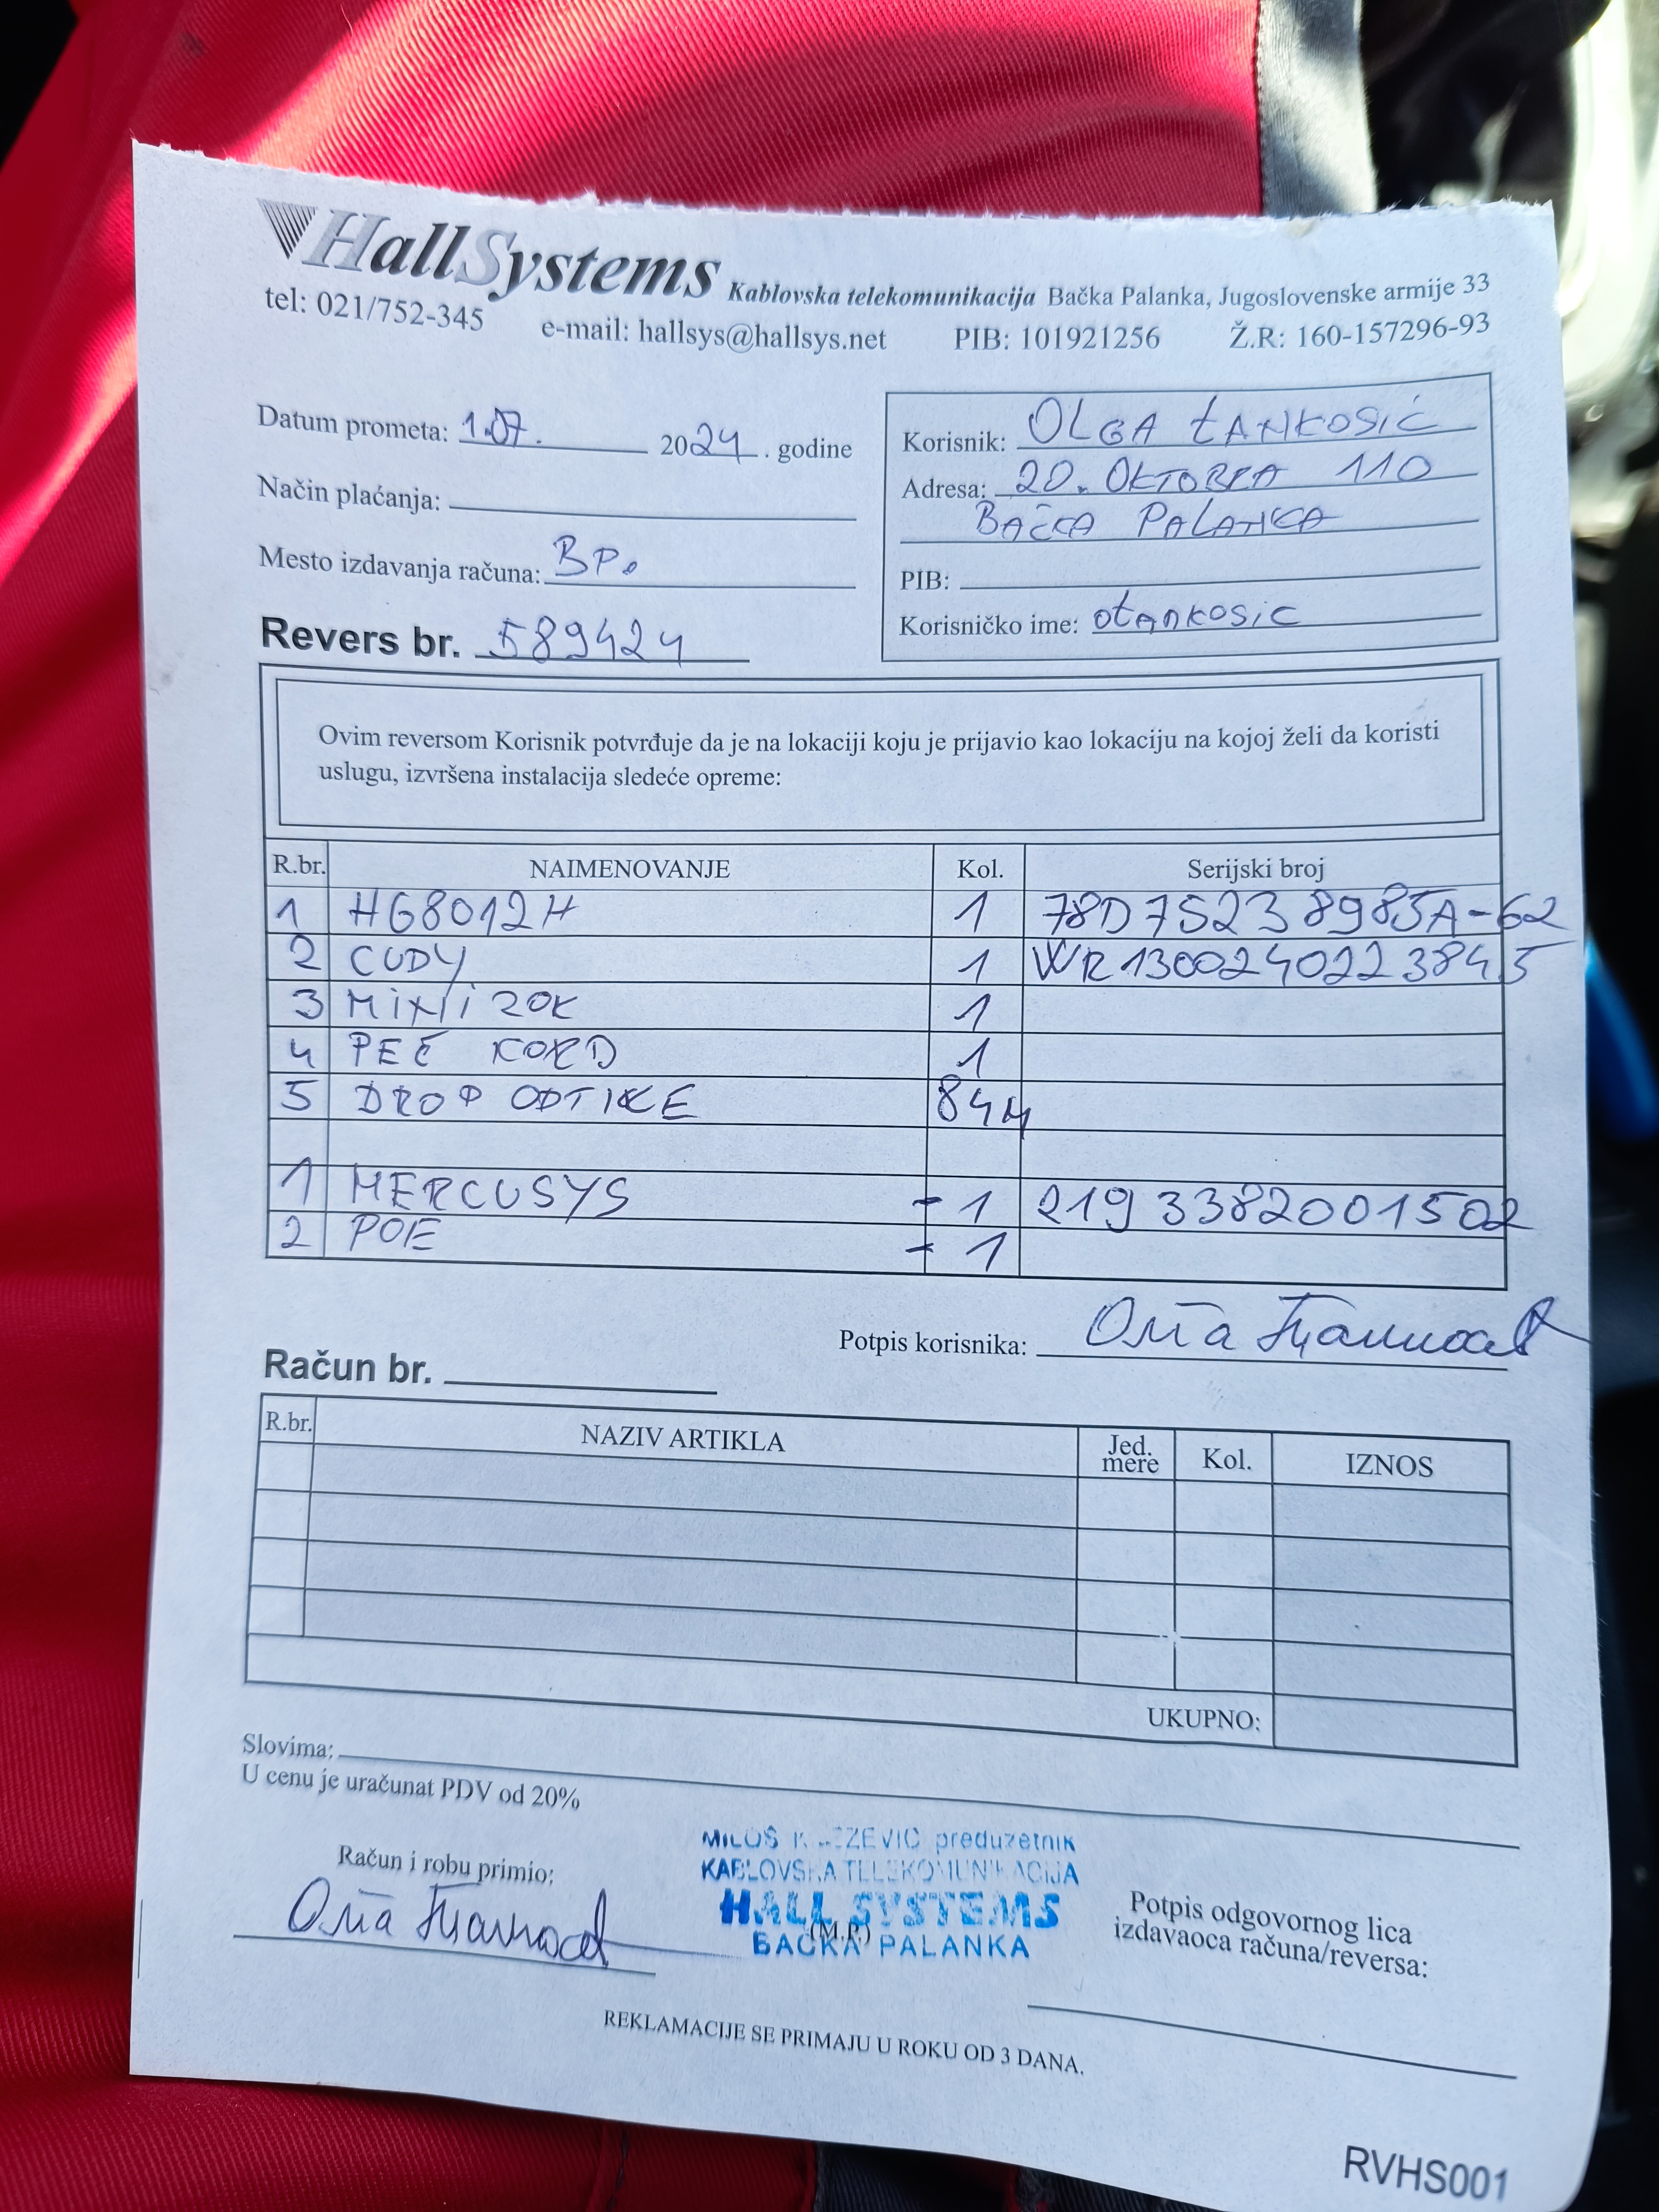 HallSystems Kablovska telekomunikacija Bačka Palanka, Jugoslovenske armije 33
tel: 021/752-345 e-mail: hallsys@hallsys.net PIB: 101921256 Ž.R: 160-157296-93
Datum prometa: 1.07. 2024. godine
Način plaćanja:
Mesto izdavanja računa: BP.
Revers br. 589424
Korisnik: OLGA TANKOSIĆ
Adresa: 20. OKTOBRA 110
BAČKA PALANKA
PIB:
Korisničko ime: otankosic
Ovim reversom Korisnik potvrđuje da je na lokaciji koju je prijavio kao lokaciju na kojoj želi da koristi
uslugu, izvršena instalacija sledeće opreme:
R.br. NAIMENOVANJE Kol. Serijski broj
1 HG8012H 1 78D75238985A-62
2 CUDY 1 WR1300240223845
3 MiNi ZOK 1
4 PEČ KORD 1
5 DROP OPTIKE 84M
1 MERCUSYS -1 2193382001502
2 POE -1
Potpis korisnika: Олга
Račun br.
R.br. NAZIV ARTIKLA Jed. mere Kol. IZNOS
UKUPNO:
Slovima:
U cenu je uračunat PDV od 20%
Račun i robu primio:
Олга
MILOŠ preduzetnik
KABLOVSKA TELEKOMUNIKACIJA
HALL SYSTEMS
(M.P.)
BAČKA PALANKA
Potpis odgovornog lica
izdavaoca računa/reversa:
REKLAMACIJE SE PRIMAJU U ROKU OD 3 DANA.
RVHS001